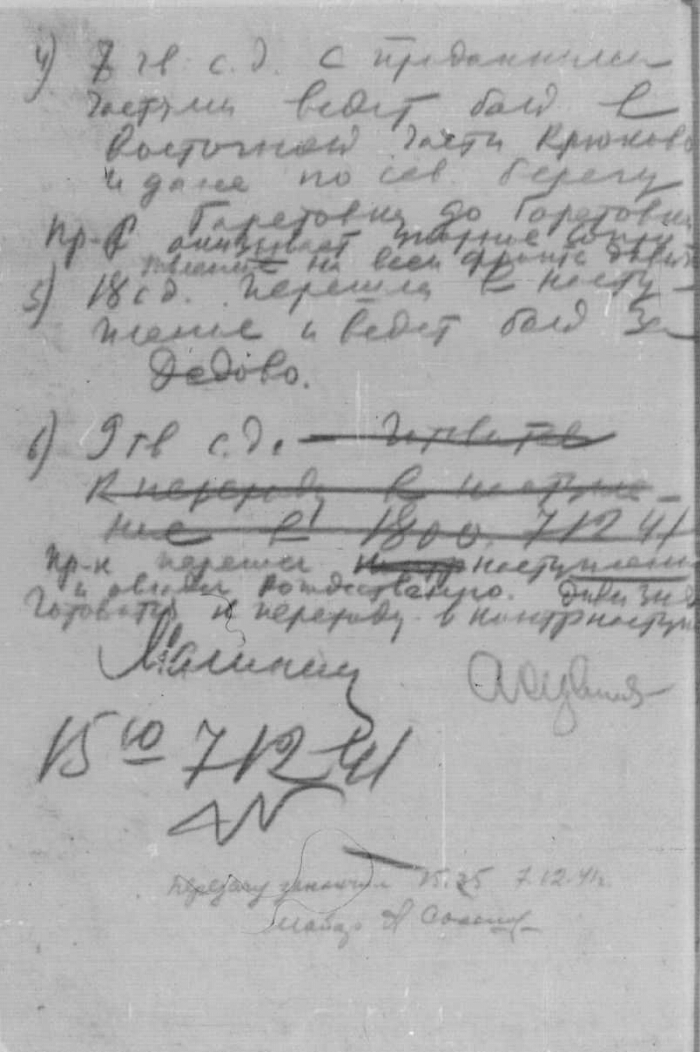 4) 7 гв. с.д. с приданными
частями ведет бой в
восточной части Крюково
и далее по сев. берегу
Горетовка до Горетовка
Пр-к оказывает упорное сопро
тивление на всем фронте дивиз
5) 18 сд. перешла в насту-
пление и ведет бой за
Дедово.
6) 9 гв с.д. – готовится
к переходу в наступле
ние в 1800 7 12 41
Пр-к перешел наступление
и овладел Рождествено. Дивизия
готовится к переходу в контрнаступ
Малинин
15 10 7 12 41
Передачу закончил 15.25 7.12.41г.
Майор